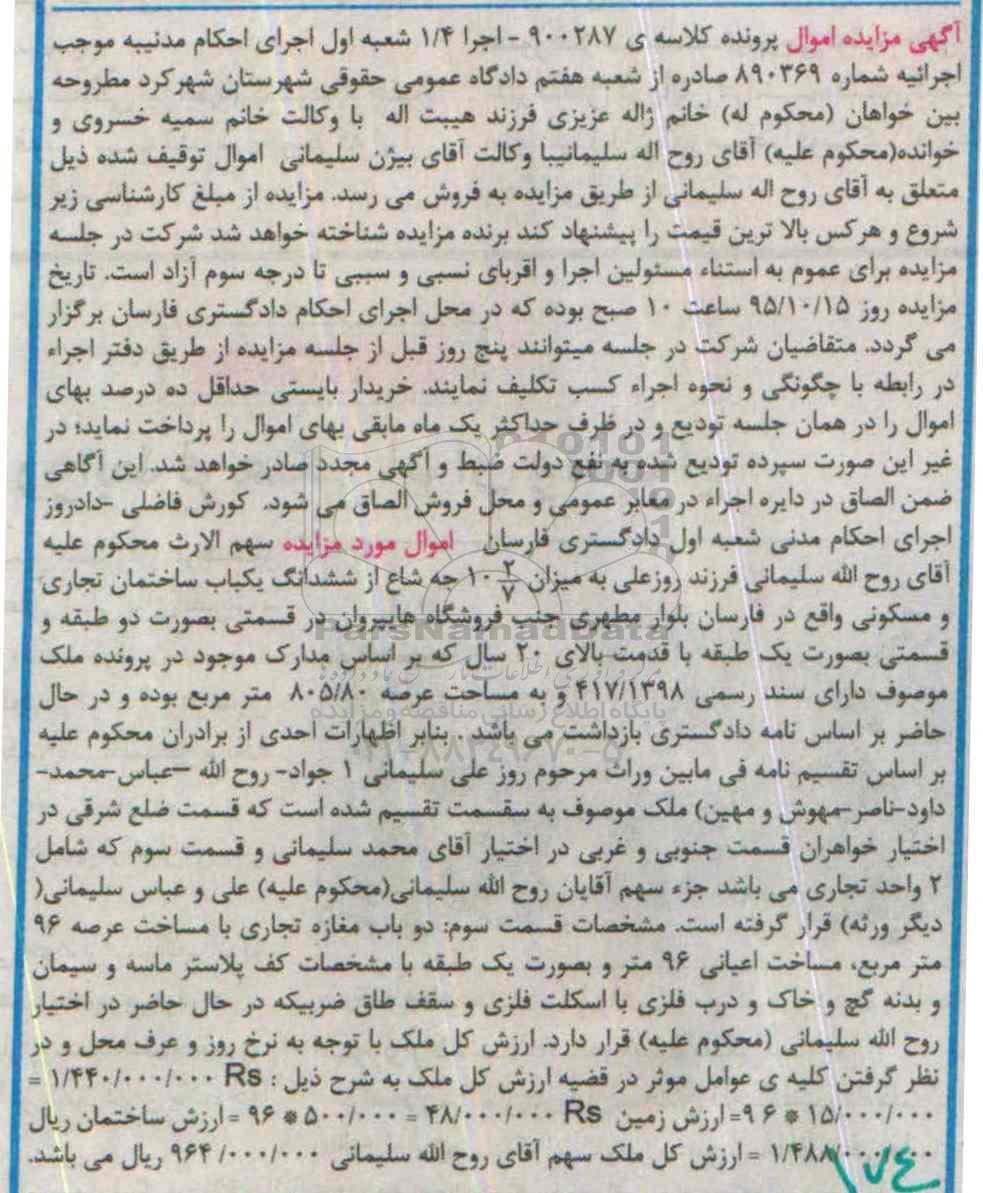 آگهی مزایده اموال پرونده کلاسه ی ۹۰۰۲۸۷ - اجرا ۱/۴ شعبه اول اجرای احکام مدنیبه موجب
اجرائیه شماره ۸۹۰۳۶۹ صادره از شعبه هفتم دادگاه عمومی حقوقی شهرستان شهرکرد مطروحه
بین خواهان (محکوم له) خانم ژاله عزیزی فرزند هیبت اله با وکالت خانم سمیه خسروی و
خوانده(محکوم علیه) آقای روح اله سلیمانیبا وکالت آقای بیژن سلیمانی اموال توقیف شده ذیل
متعلق به آقای روح اله سلیمانی از طریق مزایده به فروش می رسد. مزایده از مبلغ کارشناسی زیر
شروع و هرکس بالا ترین قیمت را پیشنهاد کند برنده مزایده شناخته خواهد شد شرکت در جلسه
مزایده برای عموم به استناء مسئولین اجرا و اقربای نسبی و سببی تا درجه سوم آزاد است. تاریخ
مزایده روز ۹۵/۱۰/۱۵ ساعت ۱۰ صبح بوده که در محل اجرای احکام دادگستری فارسان برگزار
می گردد. متقاضیان شرکت در جلسه میتوانند پنج روز قبل از جلسه مزایده از طریق دفتر اجراء
در رابطه با چگونگی و نحوه اجراء کسب تکلیف نمایند. خریدار بایستی حداقل ده درصد بهای
اموال را در همان جلسه تودیع و در ظرف حداکثر یک ماه مابقی بهای اموال را پرداخت نماید؛ در
غیر این صورت سپرده تودیع شده به نفع دولت ضبط و آگهی مجدد صادر خواهد شد. این آگاهی
ضمن الصاق در دایره اجراء در معابر عمومی و محل فروش الصاق می شود. کورش فاضلی -دادروز
اجرای احکام مدنی شعبه اول دادگستری فارسان اموال مورد مزایده سهم الارث محکوم علیه
آقای روح الله سلیمانی فرزند روزعلی به میزان ۱۰ ۲/۷ حه شاع از ششدانگ یکباب ساختمان تجاری
و مسکونی واقع در فارسان بلوار مطهری جنب فروشگاه هایپروان در قسمتی بصورت دو طبقه و
قسمتی بصورت یک طبقه با قدمت بالای ۲۰ سال که بر اساس مدارک موجود در پرونده ملک
موصوف دارای سند رسمی ۴۱۷/۱۳۹۸ و به مساحت عرصه ۸۰۵/۸۰ متر مربع بوده و در حال
حاضر بر اساس نامه دادگستری بازداشت می باشد . بنابر اظهارات احدی از برادران محکوم علیه
بر اساس تقسیم نامه فی مابین وراث مرحوم روز علی سلیمانی ۱ جواد- روح الله –عباس-محمد-
داود-ناصر-مهوش و مهین) ملک موصوف به سقسمت تقسیم شده است که قسمت ضلع شرقی در
اختیار خواهران قسمت جنوبی و غربی در اختیار آقای محمد سلیمانی و قسمت سوم که شامل
۲ واحد تجاری می باشد جزء سهم آقایان روح الله سلیمانی(محکوم علیه) علی و عباس سلیمانی(
دیگر ورثه) قرار گرفته است. مشخصات قسمت سوم: دو باب مغازه تجاری با مساخت عرصه ۹۶
متر مربع، مساخت اعیانی ۹۶ متر و بصورت یک طبقه با مشخصات کف پلاستر ماسه و سیمان
و بدنه گچ و خاک و درب فلزی با اسکلت فلزی و سقف طاق ضربیکه در حال حاضر در اختیار
روح الله سلیمانی (محکوم علیه) قرار دارد. ارزش کل ملک با توجه به نرخ روز و عرف محل و در
نظر گرفتن کلیه ی عوامل موثر در قضیه ارزش کل ملک به شرح ذیل : Rs ۱/۴۴۰/۰۰۰/۰۰۰ =
۱۵/۰۰۰/۰۰۰ * ۹۶ =ارزش زمین Rs ۴۸/۰۰۰/۰۰۰ = ۵۰۰/۰۰۰ * ۹۶ = ارزش ساختمان ریال
۱/۴۸۸/۰۰۰/۰۰۰ = ارزش کل ملک سهم آقای روح الله سلیمانی ۹۶۴/۰۰۰/۰۰۰ ریال می باشد.
۱۷٤
ParsNamadData
پایگاه اطلاع رسانی مناقصه و مزایده